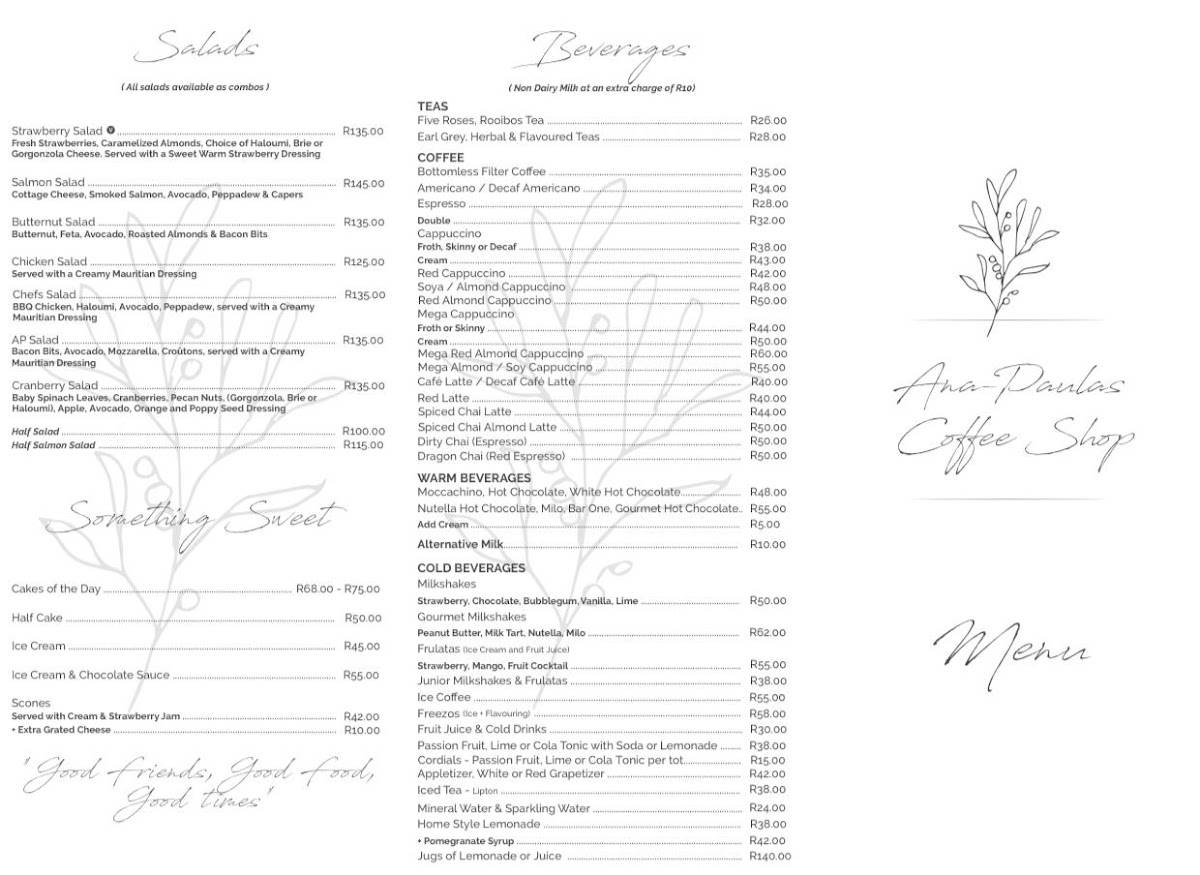 Salads
( All salads available as combos )
Strawberry Salad V R135.00
Fresh Strawberries, Caramelized Almonds, Choice of Haloumi, Brie or
Gorgonzola Cheese. Served with a Sweet Warm Strawberry Dressing
Salmon Salad R145.00
Cottage Cheese, Smoked Salmon, Avocado, Peppadew & Capers
Butternut Salad R135.00
Butternut, Feta, Avocado, Roasted Almonds & Bacon Bits
Chicken Salad R125.00
Served with a Creamy Mauritian Dressing
Chefs Salad R135.00
BBQ Chicken, Haloumi, Avocado, Peppadew, served with a Creamy
Mauritian Dressing
AP Salad R135.00
Bacon Bits, Avocado, Mozzarella, Croûtons, served with a Creamy
Mauritian Dressing
Cranberry Salad R135.00
Baby Spinach Leaves, Cranberries, Pecan Nuts, (Gorgonzola, Brie or
Haloumi), Apple, Avocado, Orange and Poppy Seed Dressing
Half Salad R100.00
Half Salmon Salad R115.00
Something Sweet
Cakes of the Day R68.00 - R75.00
Half Cake R50.00
Ice Cream R45.00
Ice Cream & Chocolate Sauce R55.00
Scones
Served with Cream & Strawberry Jam R42.00
+ Extra Grated Cheese R10.00
'Good friends, Good food,
Good times'
Beverages
( Non Dairy Milk at an extra charge of R10)
TEAS
Five Roses, Rooibos Tea R26.00
Earl Grey, Herbal & Flavoured Teas R28.00
COFFEE
Bottomless Filter Coffee R35.00
Americano / Decaf Americano R34.00
Espresso R28.00
Double R32.00
Cappuccino
Froth, Skinny or Decaf R38.00
Cream R43.00
Red Cappuccino R42.00
Soya / Almond Cappuccino R48.00
Red Almond Cappuccino R50.00
Mega Cappuccino
Froth or Skinny R44.00
Cream R50.00
Mega Red Almond Cappuccino R60.00
Mega Almond / Soy Cappuccino R55.00
Café Latte / Decaf Café Latte R40.00
Red Latte R40.00
Spiced Chai Latte R44.00
Spiced Chai Almond Latte R50.00
Dirty Chai (Espresso) R50.00
Dragon Chai (Red Espresso) R50.00
WARM BEVERAGES
Moccachino, Hot Chocolate, White Hot Chocolate R48.00
Nutella Hot Chocolate, Milo, Bar One, Gourmet Hot Chocolate R55.00
Add Cream R5.00
Alternative Milk R10.00
COLD BEVERAGES
Milkshakes
Strawberry, Chocolate, Bubblegum, Vanilla, Lime R50.00
Gourmet Milkshakes
Peanut Butter, Milk Tart, Nutella, Milo R62.00
Frulatas (Ice Cream and Fruit Juice)
Strawberry, Mango, Fruit Cocktail R55.00
Junior Milkshakes & Frulatas R38.00
Ice Coffee R55.00
Freezos (Ice + Flavouring) R58.00
Fruit Juice & Cold Drinks R30.00
Passion Fruit, Lime or Cola Tonic with Soda or Lemonade R38.00
Cordials - Passion Fruit, Lime or Cola Tonic per tot R15.00
Appletizer, White or Red Grapetizer R42.00
Iced Tea - Lipton R38.00
Mineral Water & Sparkling Water R24.00
Home Style Lemonade R38.00
+ Pomegranate Syrup R42.00
Jugs of Lemonade or Juice R140.00
Ana-Paulas
Coffee Shop
Menu